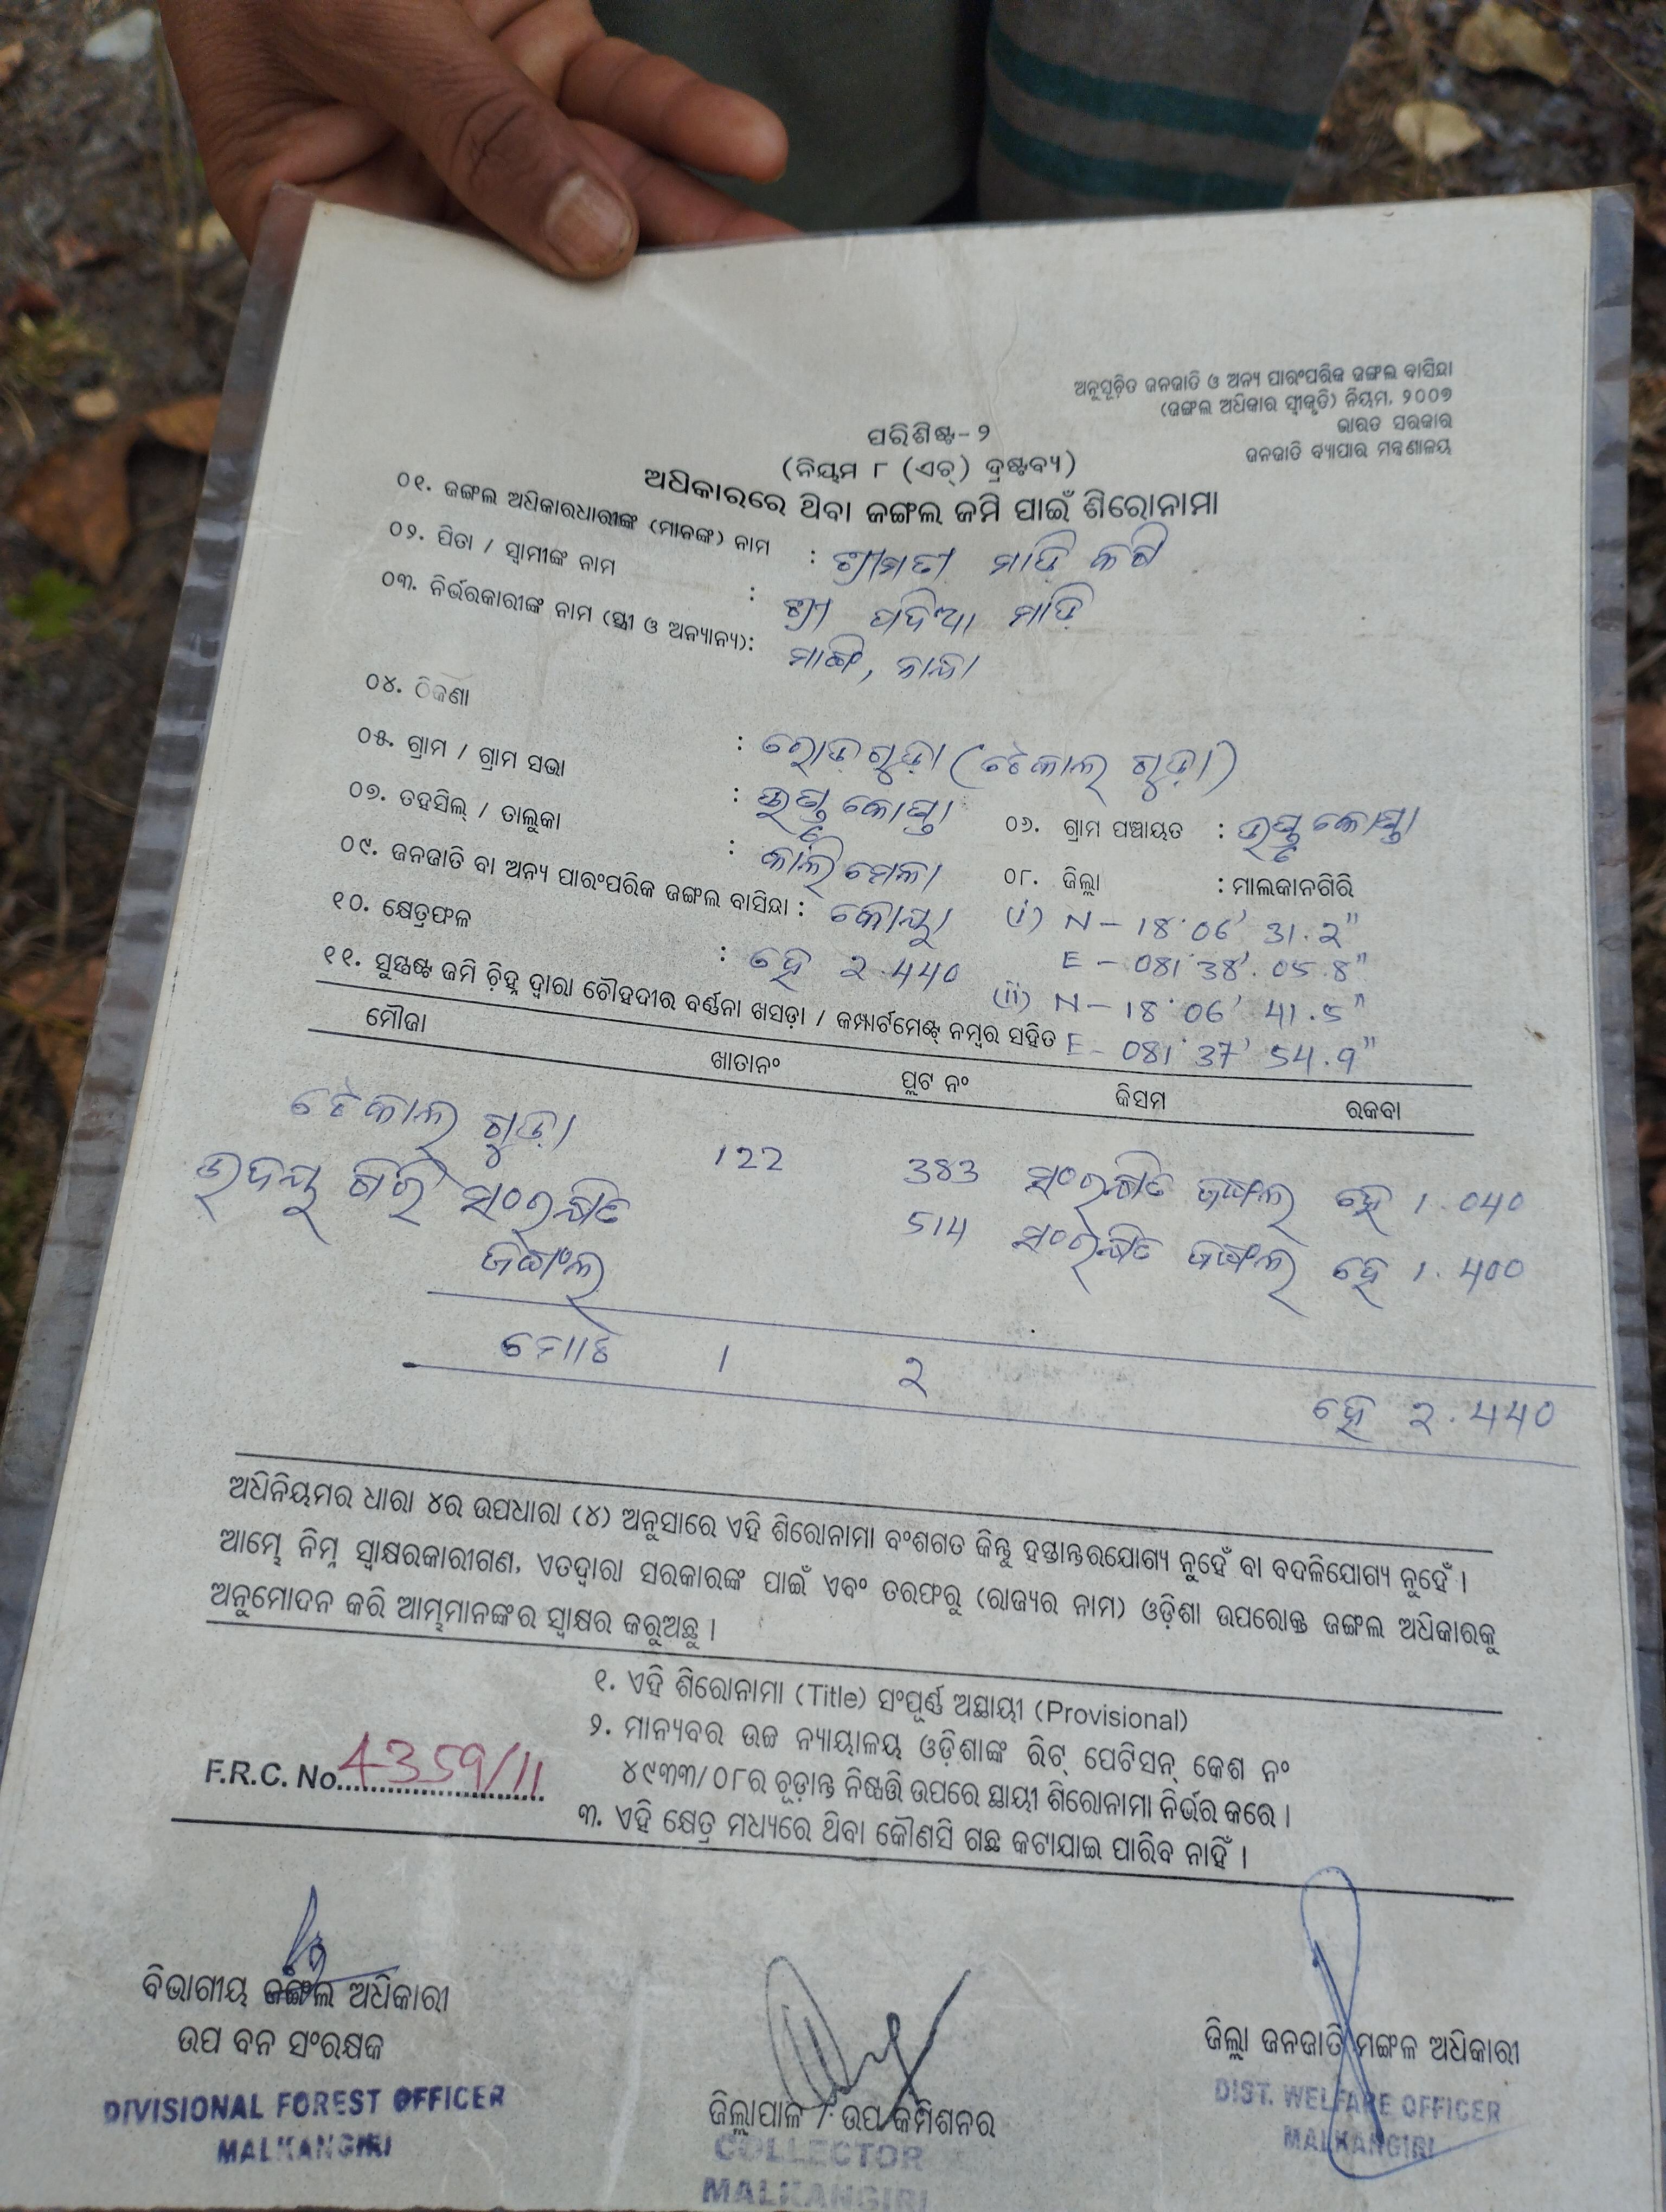 ଅନୁସୂଚିତ ଜନଜାତି ଓ ଅନ୍ୟ ପାରଂପରିକ ଜଙ୍ଗଲ ବାସିନ୍ଦା
(ଜଙ୍ଗଲ ଅଧିକାର ସ୍ୱୀକୃତି) ନିୟମ, ୨୦୦୭
ଭାରତ ସରକାର
ଜନଜାତି ବ୍ୟାପାର ମନ୍ତ୍ରଣାଳୟ
ପରିଶିଷ୍ଟ-୨
(ନିୟମ ୮ (ଏଚ୍) ଦ୍ରଷ୍ଟବ୍ୟ)
ଅଧିକାରରେ ଥିବା ଜଙ୍ଗଲ ଜମି ପାଇଁ ଶିରୋନାମା
୦୧. ଜଙ୍ଗଲ ଅଧିକାରଧାରୀଙ୍କ (ମାନଙ୍କ) ନାମ : ଶ୍ରୀମତୀ ମାଡ଼ି
୦୨. ପିତା / ସ୍ୱାମୀଙ୍କ ନାମ : ଶ୍ରୀ ପଦିଆ ମାଡ଼ି
୦୩. ନିର୍ଭରକାରୀଙ୍କ ନାମ (ସ୍ତ୍ରୀ ଓ ଅନ୍ୟାନ୍ୟ):
୦୪. ଠିକଣା : ରୋଡ଼ଗୁଡ଼ା (ଟେକାଲ୍ ଗୁଡ଼ା)
୦୫. ଗ୍ରାମ / ଗ୍ରାମ ସଭା :
୦୬. ଗ୍ରାମ ପଞ୍ଚାୟତ :
୦୭. ତହସିଲ୍ / ତାଲୁକା : କାଲିମେଳା
୦୮. ଜିଲ୍ଲା : ମାଲକାନଗିରି
୦୯. ଜନଜାତି ବା ଅନ୍ୟ ପାରଂପରିକ ଜଙ୍ଗଲ ବାସିନ୍ଦା : କୋୟା
(i) N - 18°06' 31.2"
E - 081°38'.05.8"
୧୦. କ୍ଷେତ୍ରଫଳ : ହେ 2.440
(ii) N - 18°06' 41.5"
E - 081°37' 54.9"
୧୧. ସୁସ୍ପଷ୍ଟ ଜମି ଚିହ୍ନ ଦ୍ୱାରା ଚୌହଦୀର ବର୍ଣ୍ଣନା ଖସଡ଼ା / କମ୍ପାର୍ଟମେଣ୍ଟ୍ ନମ୍ବର ସହିତ
ମୌଜା ଖାତାନଂ ପ୍ଲଟ ନଂ କିସମ ରକବା
ଟେକାଲ୍ ଗୁଡ଼ା 122 383 ସଂରକ୍ଷିତ ଜଙ୍ଗଲ ହେ 1.040
ଉଦୟ ଗିରି ସଂରକ୍ଷିତ 514 ସଂରକ୍ଷିତ ଜଙ୍ଗଲ ହେ 1.400
ଜଙ୍ଗଲ
ମୋଟ 1 2 ହେ 2.440
ଅଧିନିୟମର ଧାରା ୪ର ଉପଧାରା (୪) ଅନୁସାରେ ଏହି ଶିରୋନାମା ବଂଶଗତ କିନ୍ତୁ ହସ୍ତାନ୍ତରଯୋଗ୍ୟ ନୁହେଁ ବା ବଦଳିଯୋଗ୍ୟ ନୁହେଁ ।
ଆମ୍ଭେ ନିମ୍ନ ସ୍ୱାକ୍ଷରକାରୀଗଣ, ଏତଦ୍ୱାରା ସରକାରଙ୍କ ପାଇଁ ଏବଂ ତରଫରୁ (ରାଜ୍ୟର ନାମ) ଓଡ଼ିଶା ଉପରୋକ୍ତ ଜଙ୍ଗଲ ଅଧିକାରକୁ
ଅନୁମୋଦନ କରି ଆମ୍ଭମାନଙ୍କର ସ୍ୱାକ୍ଷର କରୁଅଛୁ ।
୧. ଏହି ଶିରୋନାମା (Title) ସଂପୂର୍ଣ୍ଣ ଅସ୍ଥାୟୀ (Provisional)
୨. ମାନ୍ୟବର ଉଚ୍ଚ ନ୍ୟାୟାଳୟ ଓଡ଼ିଶାଙ୍କ ରିଟ୍ ପେଟିସନ୍ କେଶ ନଂ
୪୯୩୩/୦୮ର ଚୂଡ଼ାନ୍ତ ନିଷ୍ପତ୍ତି ଉପରେ ସ୍ଥାୟୀ ଶିରୋନାମା ନିର୍ଭର କରେ ।
F.R.C. No. 4359/11
୩. ଏହି କ୍ଷେତ୍ର ମଧ୍ୟରେ ଥିବା କୌଣସି ଗଛ କଟାଯାଇ ପାରିବ ନାହିଁ ।
ବିଭାଗୀୟ ଜଙ୍ଗଲ ଅଧିକାରୀ
ଉପ ବନ ସଂରକ୍ଷକ
DIVISIONAL FOREST OFFICER
MALKANGIRI
ଜିଲ୍ଲାପାଳ / ଉପ କମିଶନର
COLLECTOR
MALKANGIRI
ଜିଲ୍ଲା ଜନଜାତି ମଙ୍ଗଳ ଅଧିକାରୀ
DIST. WELFARE OFFICER
MALKANGIRI